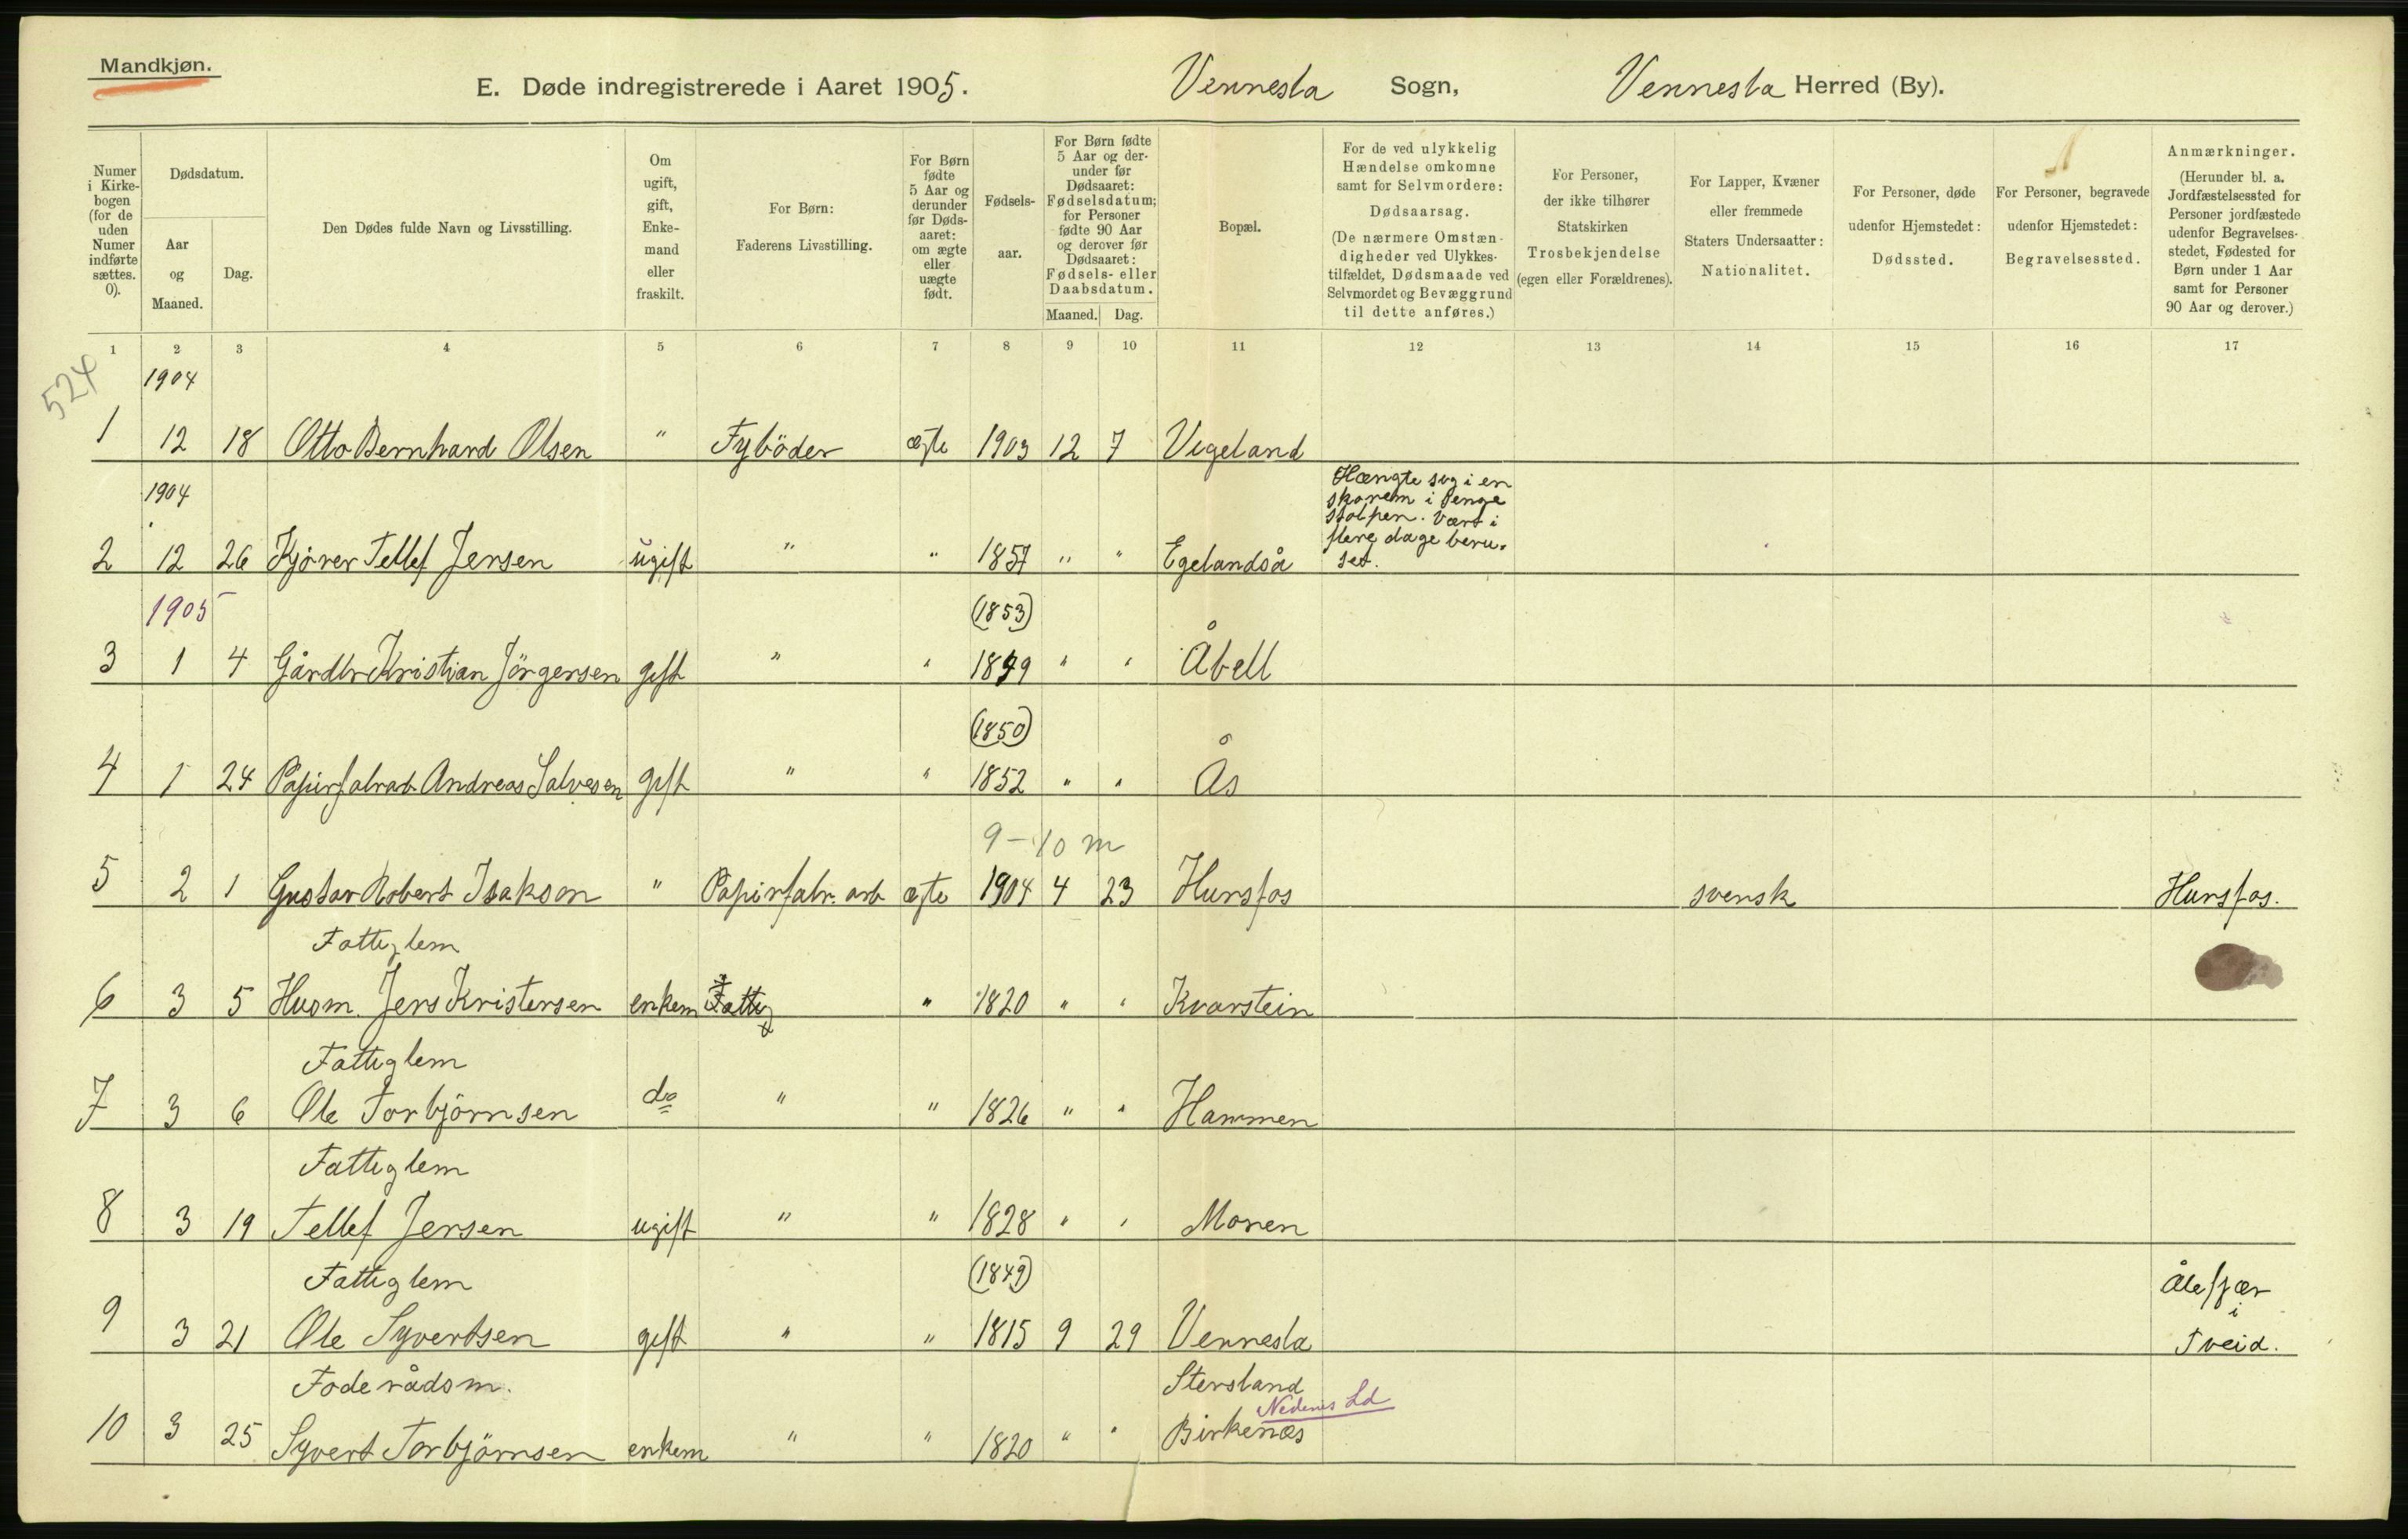 Mandkjøn.
E. Døde indregistrerede i Aaret 1905. Vennesla Sogn, Vennesla Herred (By).
Numer i Kirkebogen (for de uden Numer indførte sættes. 0).
Dødsdatum.
Aar og Maaned.
Dag.
Den Dødes fulde Navn og Livsstilling.
Om ugift, gift, Enkemand eller fraskilt.
For Børn: Faderens Livsstilling.
For Børn fødte 5 Aar og derunder før Dødsaaret: om ægte eller uægte født.
Fødselsaar.
For Børn fødte 5 Aar og derunder før Dødsaaret: Fødselsdatum; for Personer fødte 90 Aar og derover før Dødsaaret: Fødsels- eller Daabsdatum.
Maaned. Dag.
Bopæl.
For de ved ulykkelig Hændelse omkomne samt for Selvmordere: Dødsaarsag. (De nærmere Omstændigheder ved Ulykkestilfældet, Dødsmaade ved Selvmordet og Bevæggrund til dette anføres.)
For Personer, der ikke tilhører Statskirken Trosbekjendelse (egen eller Forældrenes).
For Lapper, Kvæner eller fremmede Staters Undersaatter: Nationalitet.
For Personer, døde udenfor Hjemstedet: Dødssted.
For Personer, begravede udenfor Hjemstedet: Begravelsessted.
Anmærkninger. (Herunder bl. a. Jordfæstelsessted for Personer jordfæstede udenfor Begravelsesstedet, Fødested for Børn under 1 Aar samt for Personer 90 Aar og derover.)
1 2 3 4 5 6 7 8 9 10 11 12 13 14 15 16 17
524
1904
1 12 18 Otto Bernhard Olsen " Fybøder ægte 1903 12 7 Vigeland
1904
Hængte sig i en
skorem i senge
stolpen. Vært i
flere dage beru-
set.
2 12 26 Kjörer Tellef Jensen ugift " " 1857 " " Egelandså
1905 (1853)
3 1 4 Gårdbr Kristian Jörgensen gift " " 1849 " " Åbell
(1850)
4 1 24 Papirfabrarb Andreas Salvesen gift " " 1852 " " Ås
9-10 m
5 2 1 Gustav Robert Isakson " Papirfabr. arb ægte 1904 4 23 Hunsfos svensk Hunsfos.
Fattiglem
6 3 5 Husm. Jens Kristensen enkem Fattig " 1820 " " Kvarstein
Fattiglem
7 3 6 Ole Torbjörnsen do " " 1826 " " Hammen
Fattiglem
8 3 19 Tellef Jensen ugift " " 1828 " " Monen
Fattiglem (1849) Ålefjær
i
9 3 21 Ole Syvertsen gift " " 1815 9 29 Vennesla Tveid.
Foderådsm. Stersland
Nedenes Ld
10 3 25 Syvert Torbjörnsen enkem " " 1820 " " Birkenæs